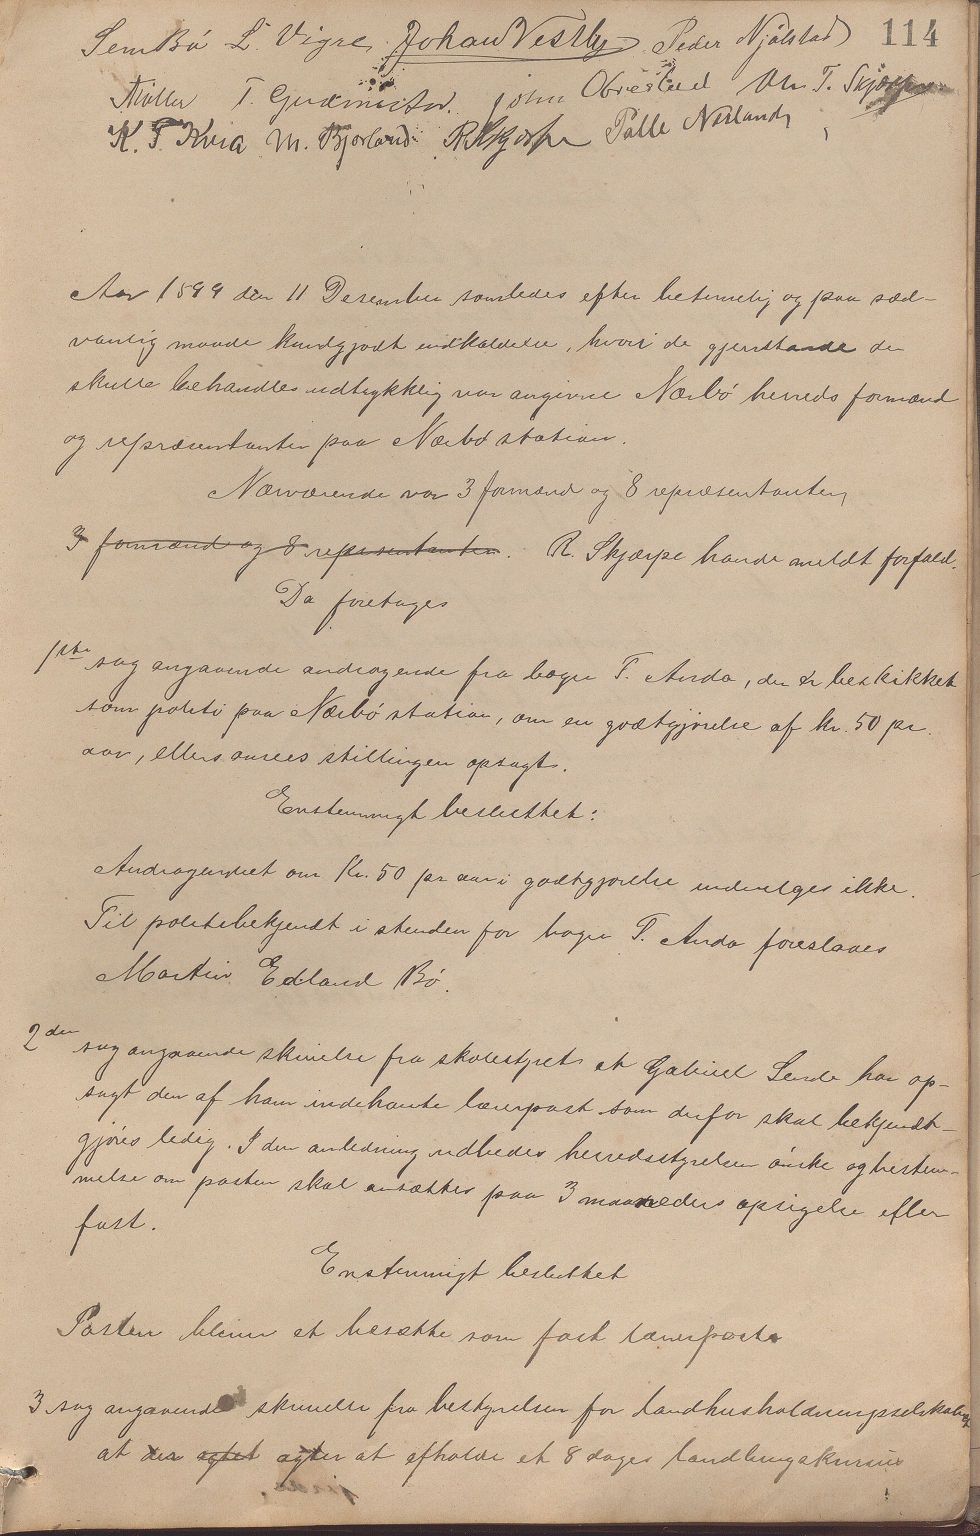 114
Sem Bö L. Vigre Johan Vestly Peder Njölstad
Möller T. Gudmestad. john Obrestad Ole T. Skjærpe
K. T. Kvia M. Bjorland R Skjærpe Palle Nærland
Aar 1899 den 11 Desember samledes efter betimelig og paa sæd-
vanlig maade kundgjodt indkaldelse, hvori de gjenstande der
skulle behandles udtrykklig var angivne Nærbö herreds formænd
og repræsentanter paa Nærbö station.
Nærværende var 3 formænd og 8 repræsentanter,
3 formænd og 8 repræsentanter. R. Skjærpe havde meldt forfald.
Da foretages
1ste sag angaaende andragende fra bager T. Anda, der er beskikket
som politi paa Nærbö station, om en godtgjörelse af kr. 50 pr.
aar, ellers ansees stillingen opsagt.
Enstemmigt besluttet:
Andragendet om Kr. 50 pr aar i godtgjörelse indvilges ikke.
Til politibetjendt i steden for bager T. Anda foreslaaes
Martin Edland Bö.
2den sag angaaende skrivelse fra skolestyret at Gabriel Lende har op-
sagt den af ham indehavte lærerpost som derfor skal bekjendt-
gjöres ledig. I den anledning udbedes herredsstyrelsen önske og bestem-
melse om posten skal ansættes paa 3 maaneders opsigelse eller
fast.
Enstemmigt besluttet
Posten bliver at besætte som fast lærerpost
3 sag angaaende skrivelse fra bestyrelsen for landhusholdningsselskabet
at der agtet agter at afholde et 8 dages landbrugskursus